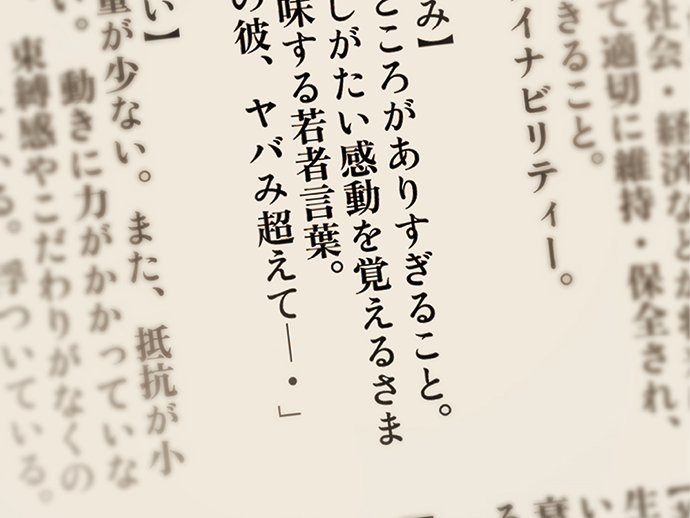 社会・経済などが将来に
て適切に維持・保全され、
きること。
イナビリティー。
み】
ところがありすぎること。
しがたい感動を覚えるさま
味する若者言葉。
の彼、ヤバみ超えて―・」
い】
量が少ない。また、抵抗が小
い。動きに力がかかっていな
束縛感やこだわりがなくの
いる。浮ついている。